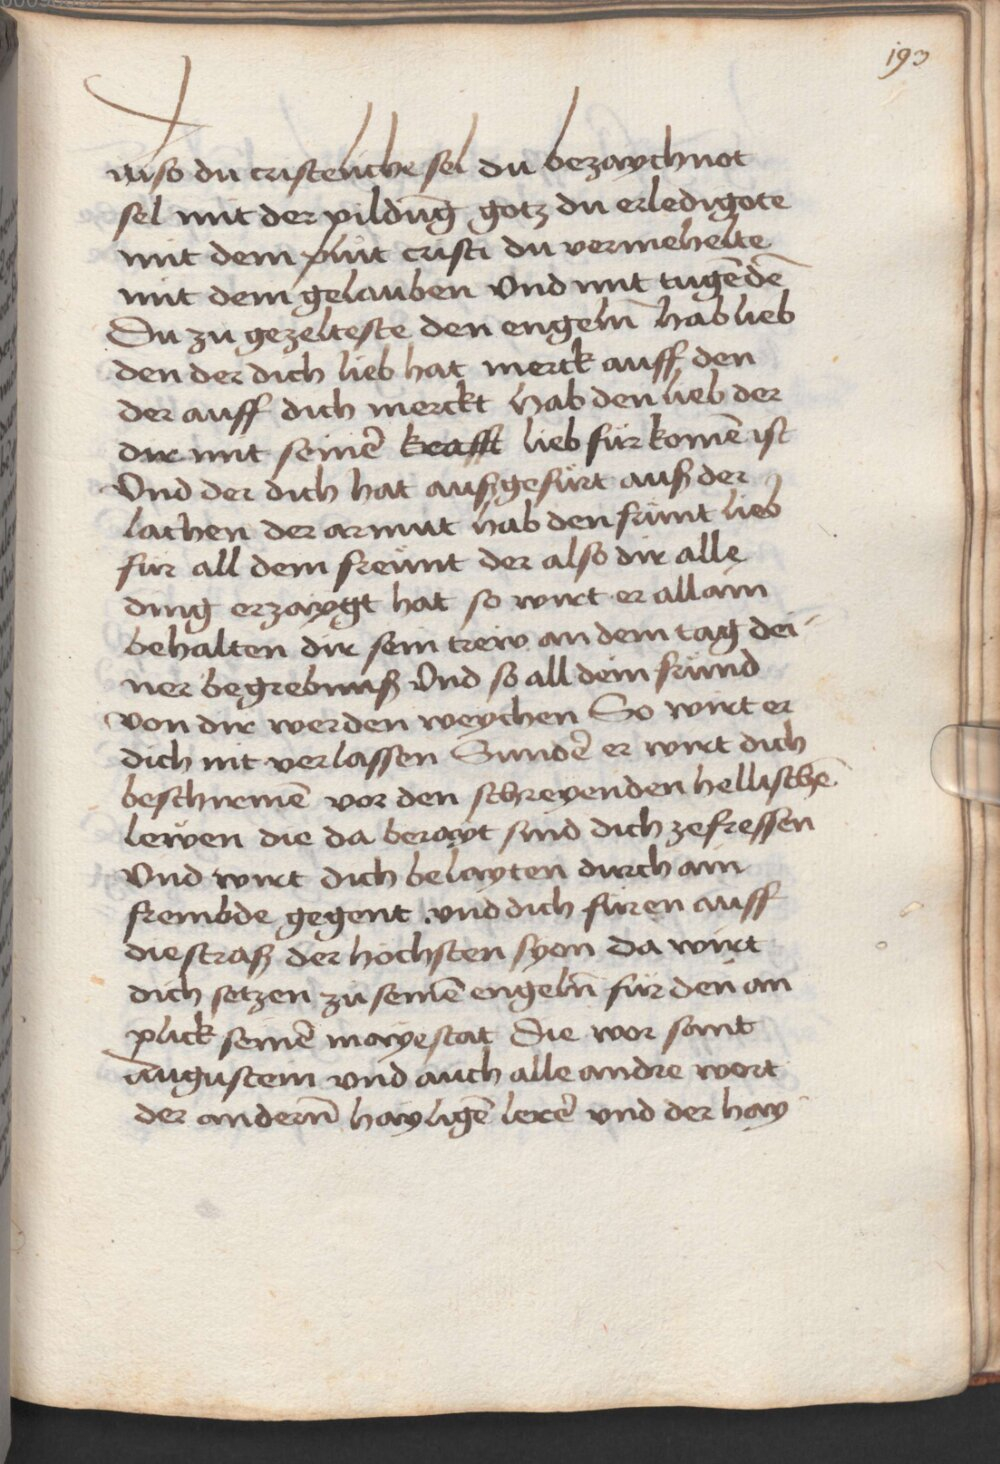 193
also du cristenliche sel du bezaychnot
sel mit der pildūg gotz du erledigote
mit dem plut cristi du vermehelte
mit dem gelauben Vnd mit tugēdē
Du zu gezelteste den engelñ hab lieb
den der dich lieb hat merck auff den
der auff dich merckt hab den lieb der
dir mit seinē krafft lieb für komē ist
Vnd der dich hat auß gefürt auß der
lachen der armut hab den frünt lieb
für all dem freünt der also dir alle
ding erzaygt hat so wirt er allain
behalten dir sein trew an dem tag dei
ner begrebnuß Vnd so all dein fründ
von dir werden weychen So wirt er
dich nit verlassen Sundē er wirt dich
beschirmē vor den schreyenden hellischē
lewen die da berayt sind dich zefressen
Vnd wirt dich belayten durch ain
frembde gegent vnd dich füren auff
die straß der höchsten syon da wirt
dich setzen zu seinē engelñ für den an
plick seinē mayestat Die wor sant
Augustein vnd auch alle andre wort
der anderñ hayligē lerē vnd der hay